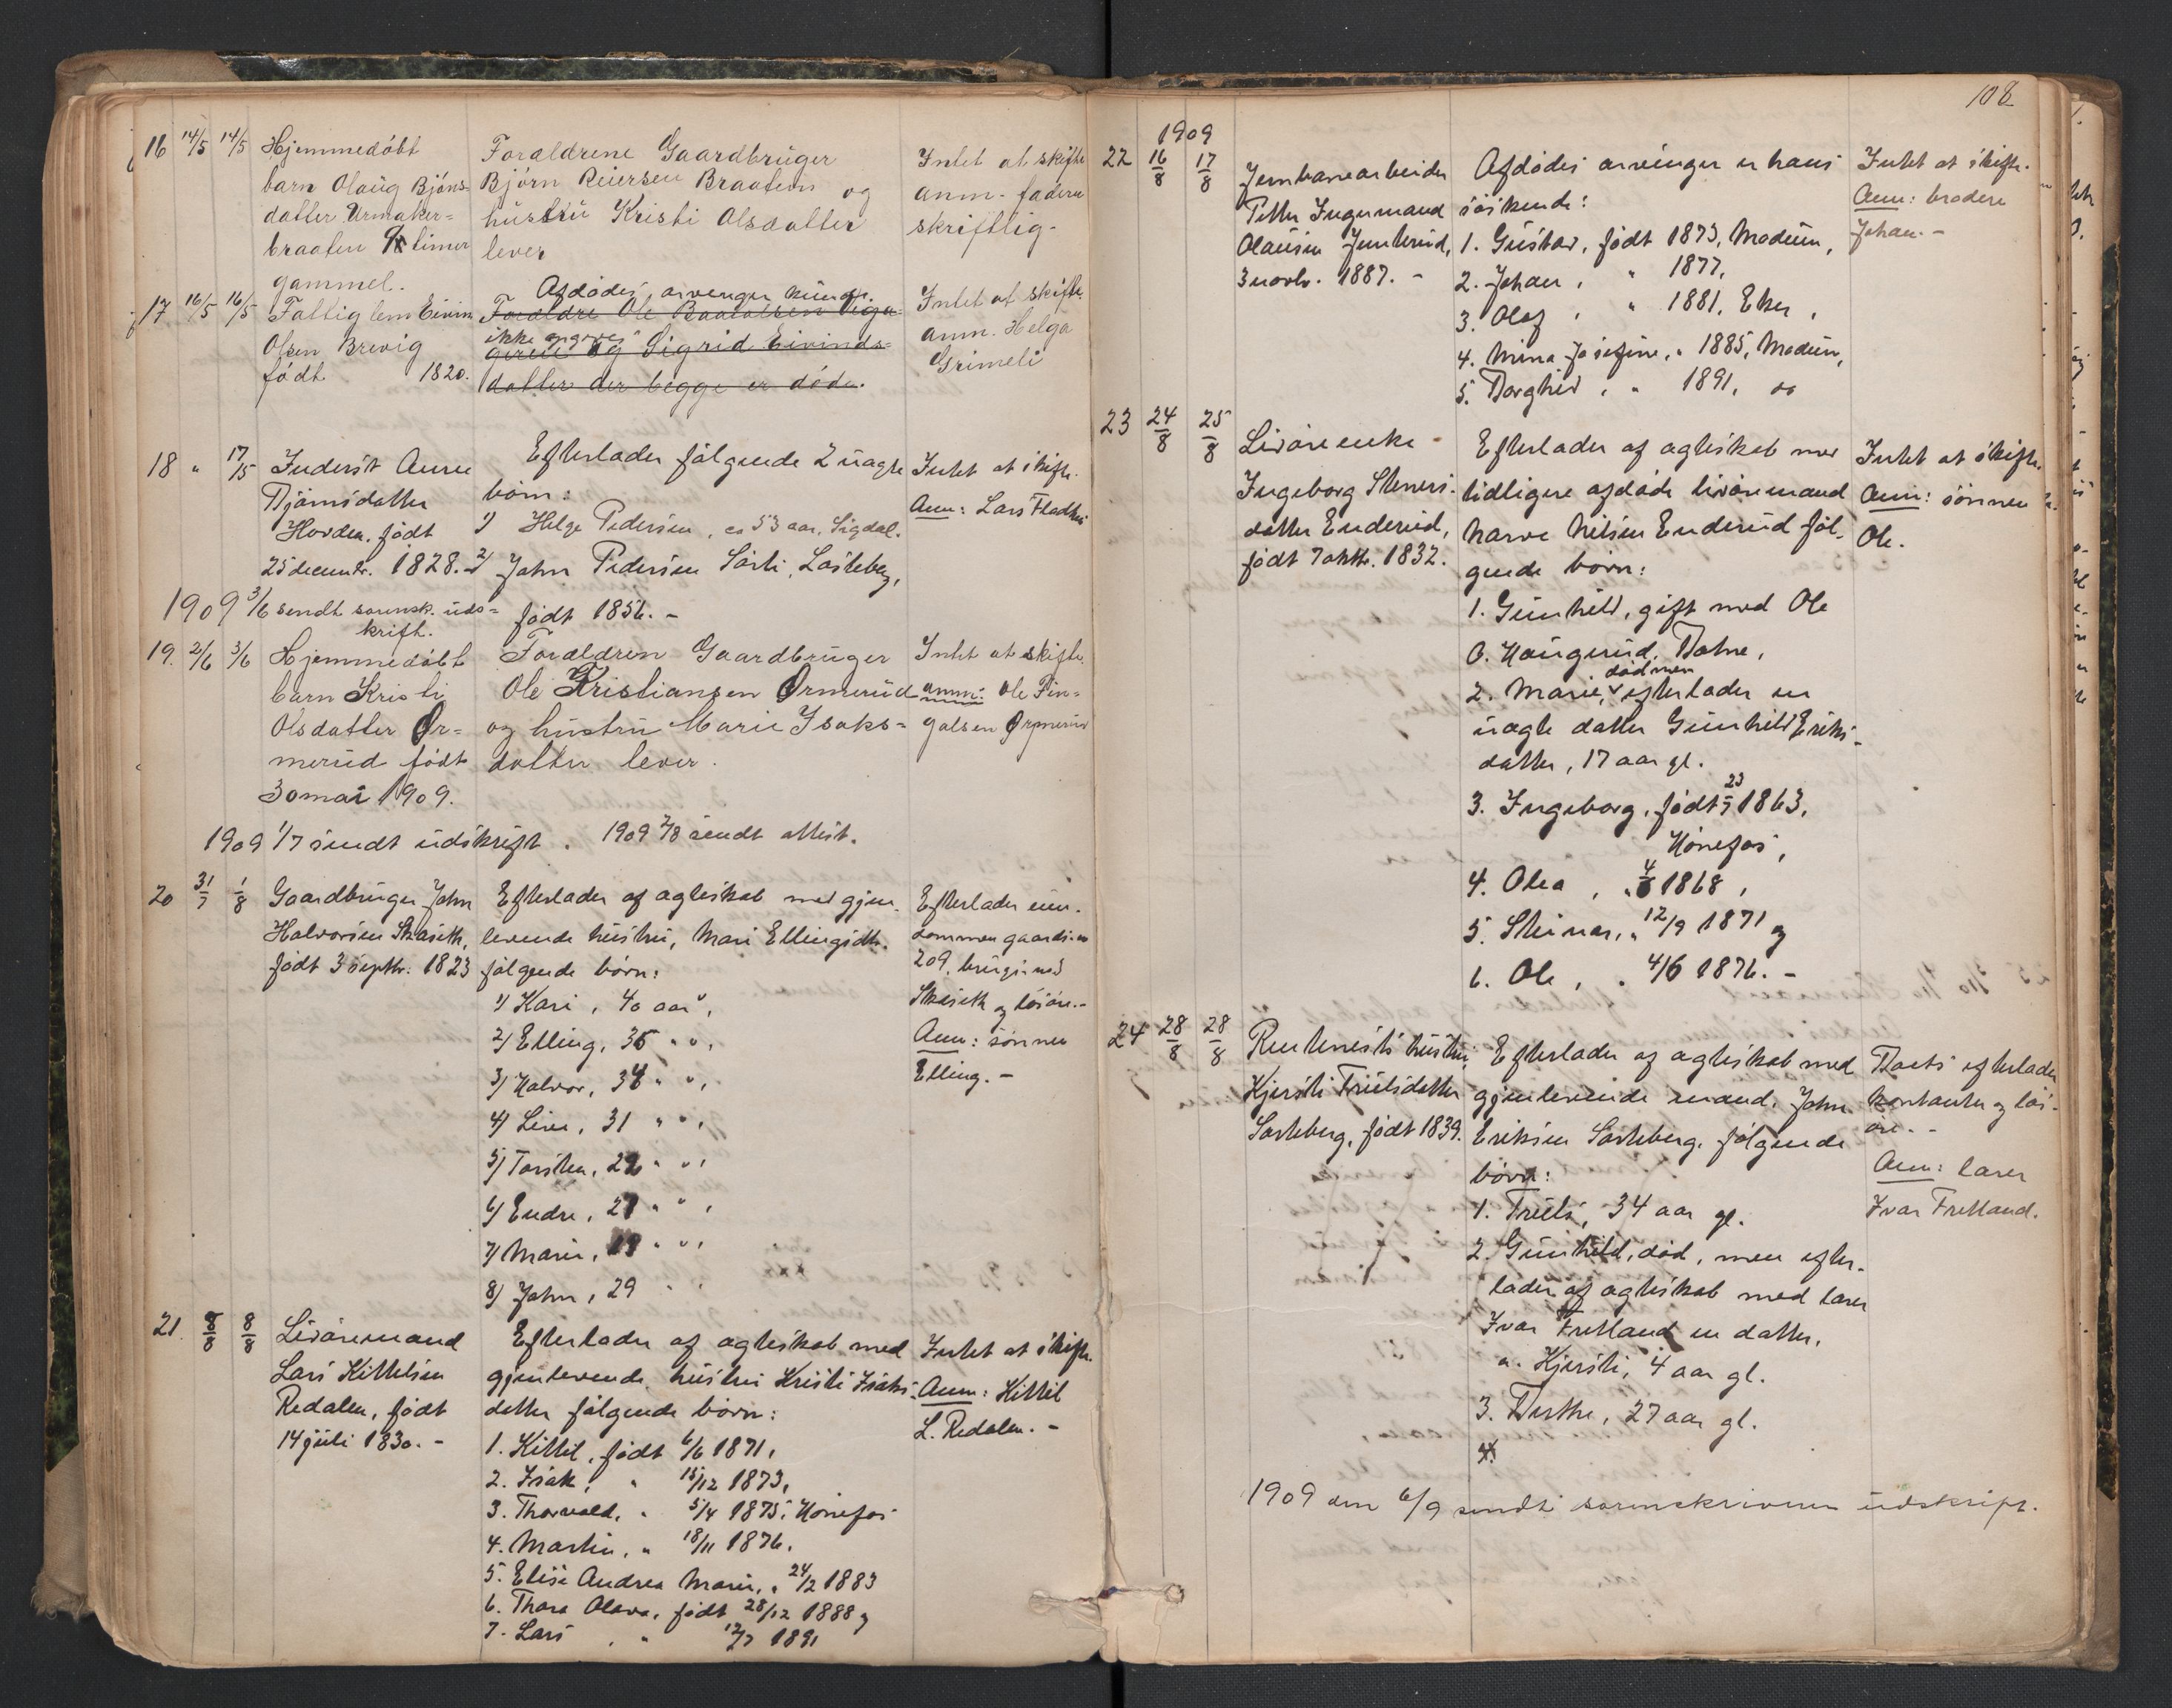 16 14/5 14/5 Hjemmedöbt Foraldrene Gaardbruger Intet at skifte
barn Olaug Bjöns- Björn Reiersen Braaten og anm. faderen
datter Urmaker= hustru Kristi Olsdatter skriftlig.
braaten timer lever
gammel.
17 16/5 16/5 Fattiglem Eivin Afdödes arvenger kunde Intet at skifte
Foraldre Ole
Olsen Brevig ikke opgives anm. Helga
og Sigrid Eivinds=
födt 1820. datter der begge er döde. Grimeli
18 " 17/5 Inderst Anne Efterlader fölgende 2 uagte Intet at skifte.
Björnsdatter börn: Anm: Lars Fladhus
Horden, födt 1) Helge Pedersen, ca 53 aar, Sigdal.
25 decembr. 1828. - 2) John Pedersen Sörli, Lösteberg,
1909 3/6 sendt sorensk. uds= födt 1856. -
krift.
19. 2/6 3/6 Hjemmedöbt Foraldren Gaardbruger Intet at skifte.
barn Kristi Ole Kristiansen Ormerud anm: Ole Fin=
Olsdatter Or= og hustru Marie Isaks= galsen Ormerud
merud födt datter lever.
30 mai 1909.
1909 1/7 sendt udskrift. 1909 7/8 sendt attest.
20 31/7 1/8 Gaardbruger John Efterlader af agteskab med gjen- Efterlader eien-
Halvorsen Skaseth, levende hustru, Mari Ellingsdtr. dommen gaards.no
födt 3 septbr. 1823 fölgende börn: 209, brugs.no 3
1) Kari, 40 aar, Skaseth og lösöre. -
2) Elling, 35 " ", Anm: sönnen
3) Halvor, 34 " ", Elling. -
4) Live, 31 " ",
5) Torsten, 22 " ",
6) Endre, 27 " ",
7) Marie, 19 " ",
8) John, 29 " "
21. 8/8 8/8 Livöremand Efterlader af agteskab med Intet at skifte.
Lars Kittelsen gjenlevende hustru Kristi Isaks- Anm: Kittil
Redalen, födt datter fölgende börn: L. Redalen. -
14 juli 1830. - 1. Kittil, födt 6/6 1871,
2. Isak, " 15/12 1873,
3. Thorvald, " 5/4 1875, Hönefos
4. Martin, " 18/11 1876.
5. Elise Andrea Marie, " 24/2 1883
6. Thora Olava, födt 28/12 1888 og
7. Lars , " 12/7 1891
108
1909
22 16/8 17/8 Jernbanearbeider Afdödes arvinger er hans Intet at skifte.
Petter Ingemand söskende: Anm: broderen
Olausen Jernberud, 1. Gustav, födt 1873, Modum, Johan. -
3 novbr. 1887. - 2. Johan, " 1877,
3. Olaf , " 1881, Eker ,
4. Mina Josefine, " 1885, Modum,
5. Borghild , " 1891, do
23 24/8 25/8 Livöreenke - Efterlader af agteskab med Intet at skifte.
Ingeborg Steners- tidligere afdöde livöremand Anm: sönnen
datter Enderud, Narve Nilsen Enderud föl- Ole.
födt 7 oktbr. 1832. gende börn:
1. Gunhild, gift med Ole
O. Haugerud,
död men
2. Marie, efterlader en
uagte datter Gunhild Eriks-
datter, 17 aar gl.
3. Ingeborg, födt 23/7 1863,
Hönefos,
4. Olea , " 1868 ,
5. Steinar, " 12/9 1871 og
6. Ole , " 4/6 1876. -
24 28/8 28/8 Rentenists hustru, Efterlader af agteskab med Boets efterlader
Kjersti Trulsdatter gjenlevende mand, John kontanter og lös-
Sörteberg, födt 1839. Eriksen Sörteberg, fölgende öre. -
börn: Anm: larer
1. Truls, 34 aar gl. Ivar Fretland.
2. Gunhild, död, men efter-
lader af agteskab med larer
Ivar Fretland en datter,
a. Kjersti, 4 aar gl.
3. Berthe, 27 aar gl.
4.
1909 den 6/9 sendt sorenskriveren udskrift.